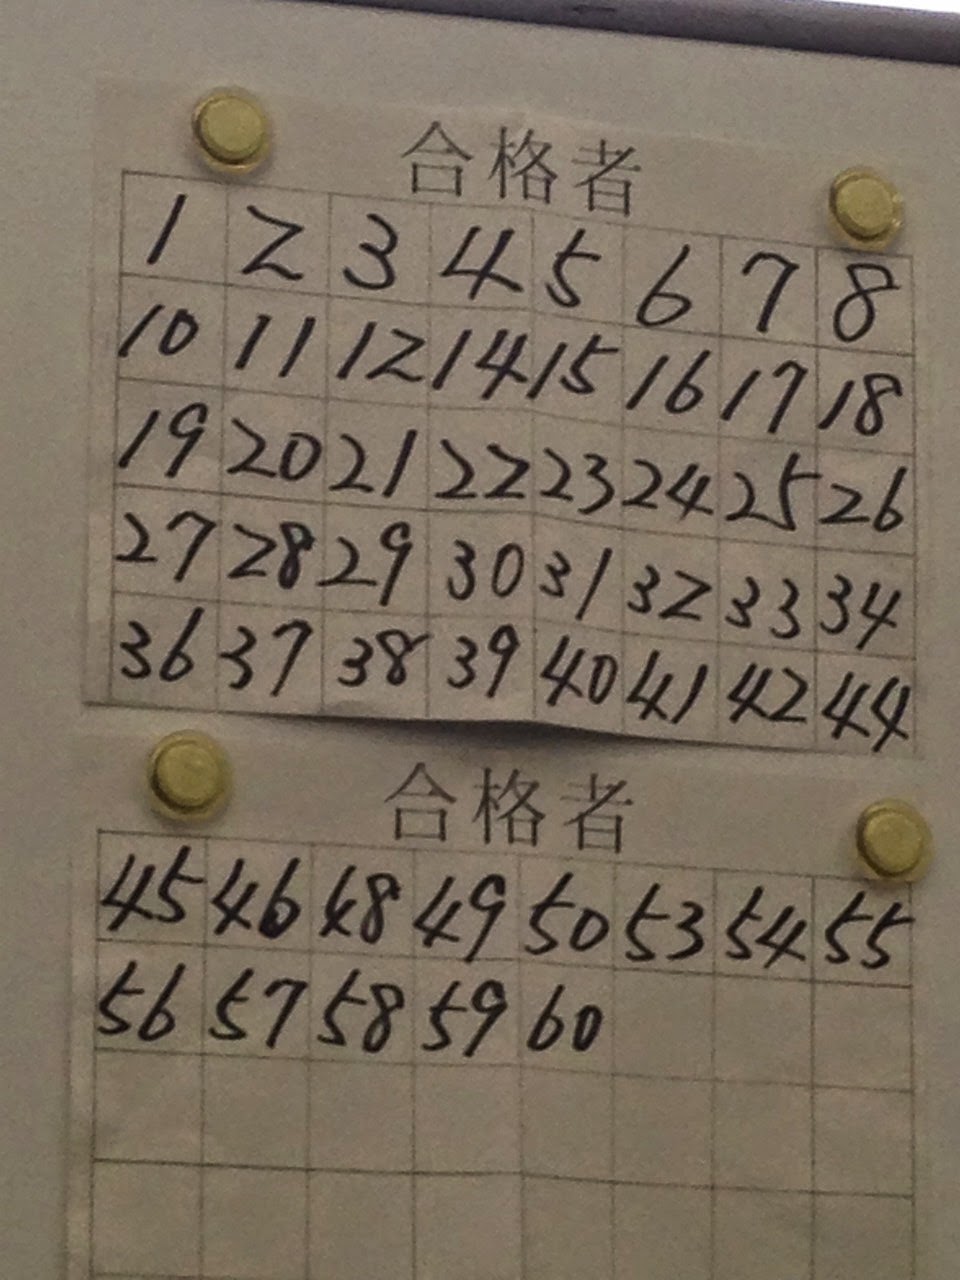 合格者
1 2 3 4 5 6 7 8
10 11 12 14 15 16 17 18
19 20 21 22 23 24 25 26
27 28 29 30 31 32 33 34
36 37 38 39 40 41 42 44
合格者
45 46 48 49 50 53 54 55
56 57 58 59 60